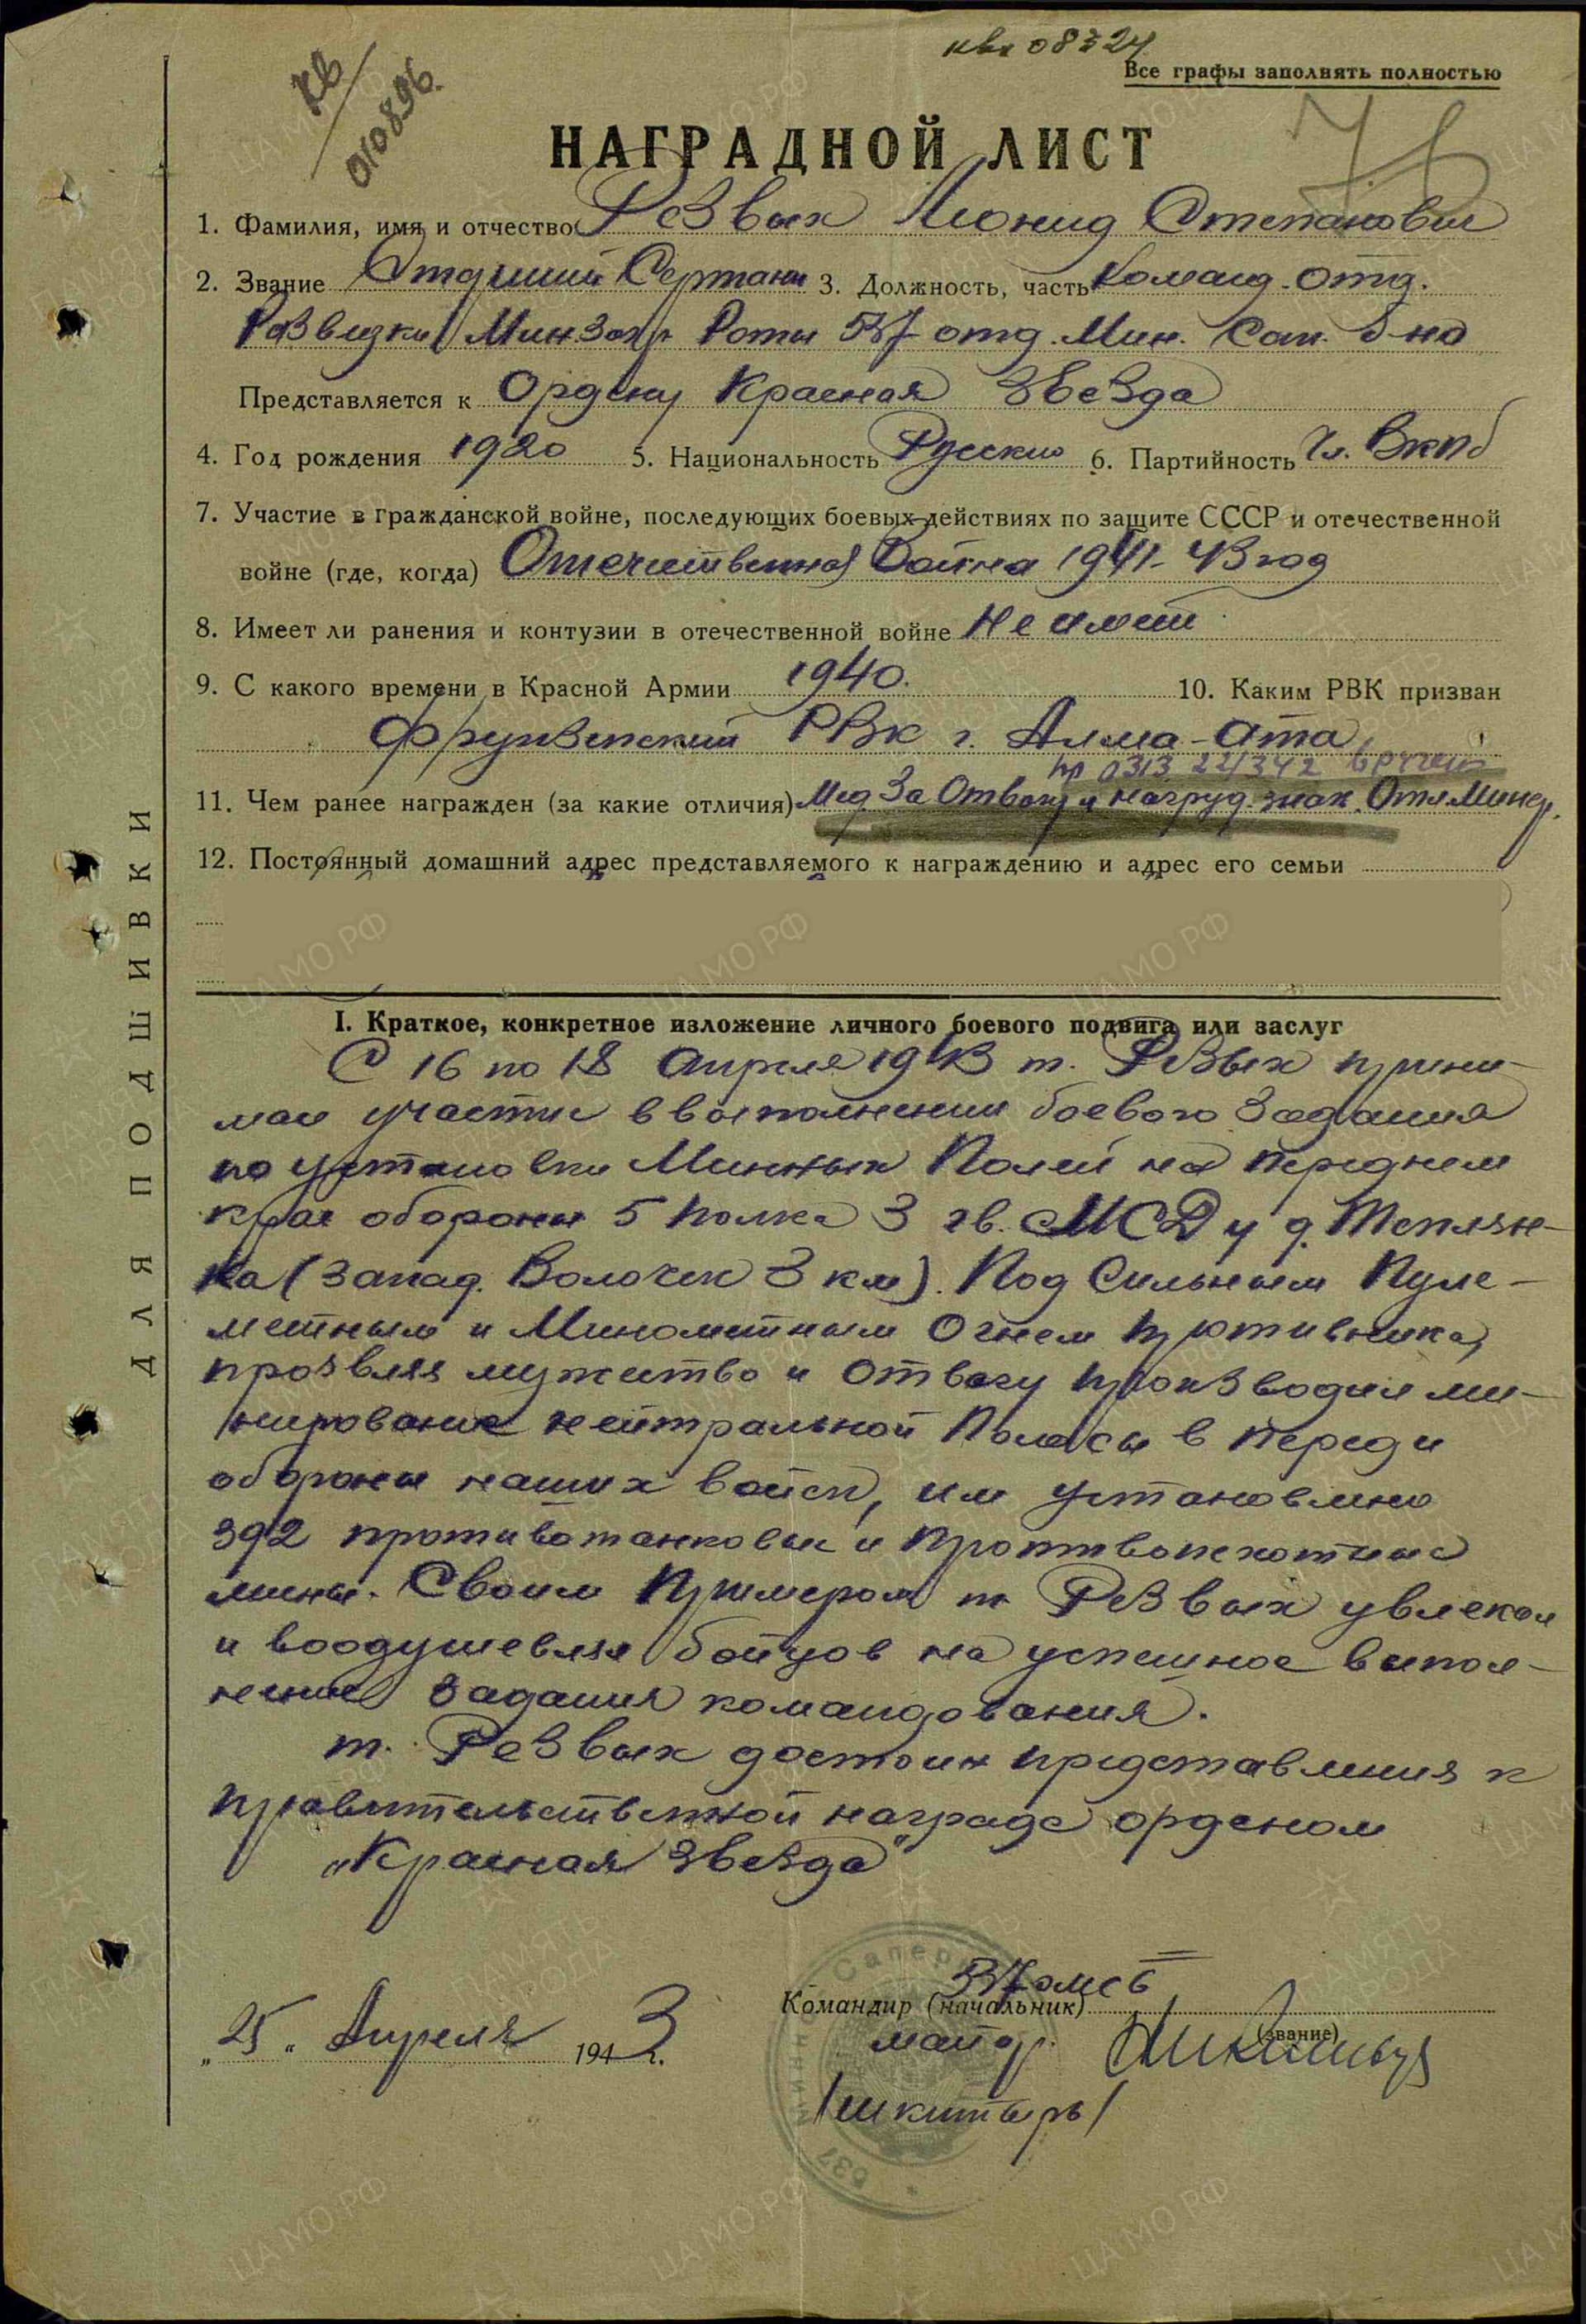 кв 08324
Все графы заполнять полностью
кв/010896.
НАГРАДНОЙ ЛИСТ
1. Фамилия, имя и отчество Резвых Леонид Степанович
2. Звание Старший Сержант 3. Должность, часть Команд. отд.
Разведки Мин.Загр Роты 537 отд. Мин. Сап. б-на
Представляется к Ордену Красная Звезда
4. Год рождения 1920 5. Национальность Русский 6. Партийность Чл. ВКПб
7. Участие в гражданской войне, последующих боевых действиях по защите СССР и отечественной
войне (где, когда) Отечественная Война 1941-43 год
8. Имеет ли ранения и контузии в отечественной войне Не имеет
9. С какого времени в Красной Армии 1940. 10. Каким РВК призван
Фрунзенский РВК г. Алма-Ата
пр 0313 221342 вручен
11. Чем ранее награжден (за какие отличия) Мед. За Отвагу и нагруд. знак. Отл.Минер.
12. Постоянный домашний адрес представляемого к награждению и адрес его семьи
ДЛЯ ПОДШИВКИ
I. Краткое, конкретное изложение личного боевого подвига или заслуг
С 16 по 18 апреля 1943 т. Резвых прини-
мал участие в выполнении боевого задания
по установки Минных Полей на переднем
крае обороны 5 полка 3 гв. МСД у д.
ка (запад. Волочек 3 км). Под Сильным Пуле-
метным и Минометным Огнем противника,
проявляя мужество и отвагу производил ми-
нирование нейтральной Полосы в переди
обороны наших войск, им установлено
392 противотанковых и противопехотные
мины. Своим Примером т. Резвых увлекал
и воодушевлял бойцов на успешное выпол-
нение задания командования.
т. Резвых достоин представления к
правительственной награде орденом
„Красная Звезда"
537 омсб
Командир (начальник)
„25" Апреля 1943 г.
майор.
(звание)
/Шкитырь/
537 Минно Саперн